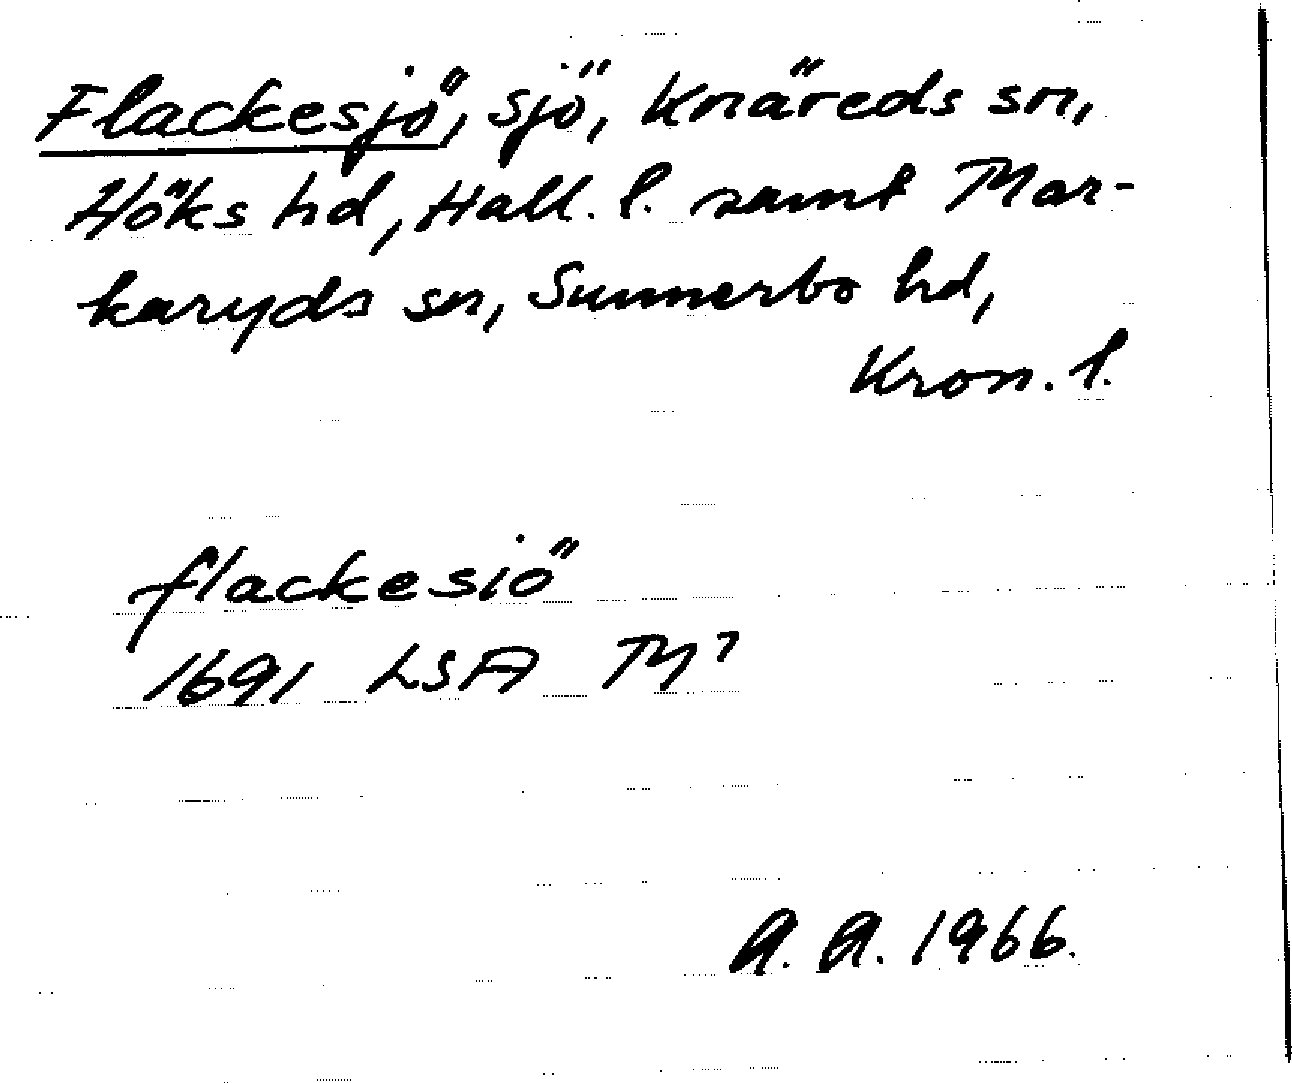 Flackesjö, sjö, Knäreds sn,
Höks hd, Hall. l. samt Mar-
karyds sn, Sunnerbo hd,
Kron. l.
flackesiö
1691 LSA M⁷
A. A. 1966.